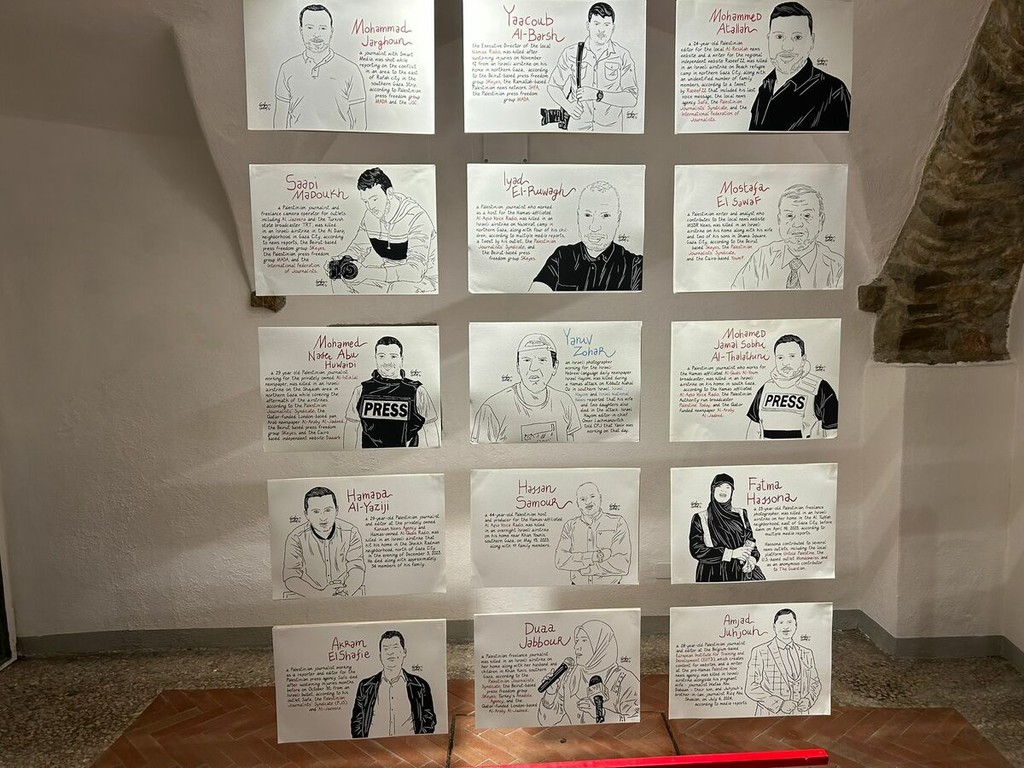 Mohammad
Jarghoun
a journalist with Smart
Media, was shot while
reporting on the conflict
in an area to the east
of Rafah city in the
southern Gaza Strip,
according to Palestinian
press freedom group
MADA and the JSC.
Yaacoub
Al-Barsh
the Executive Director of the local
Namaa Radio, was killed after
sustaining injuries on November
12 from an Israeli airstrike on his
home in northern Gaza, according
to the Beirut-based press freedom
group SKeyes, the Ramallah-based
Palestinian news network
the Palestinian press freedom
group MADA.
Mohammed
Atallah
a 24-year-old Palestinian
editor for the local Al-Resalah news
website and a writer for the regional
independent website Raseef22, was killed
in an Israeli airstrike on Beach refugee
camp in northern Gaza City, along with
an unidentified number of family
members, according to a tweet
by Raseef22 that included his last
voice message, the local news
agency Safa, the Palestinian
Journalists' Syndicate, and the
International Federation of
Journalists.
Saadi
Madoukh
a Palestinian journalist and
freelance camera operator for outlets
including Al Jazeera and the Turkish
state broadcaster TRT, was killed
in an Israeli airstrike in the Al Daraj
neighborhood in Gaza City, according
to news reports, the Beirut-based
press freedom group SKeyes,
the Palestinian press freedom
group MADA, and the
International Federation
of Journalists.
Iyad
El-Ruwagh
a Palestinian journalist who worked
as a host for the Hamas-affiliated
Al-Aqsa Voice Radio, was killed in an
Israeli airstrike on Nuseirat camp in
northern Gaza, along with four of his chil-
dren, according to multiple media reports,
a tweet by his outlet, the Palestinian
Journalists' Syndicate, and
the Beirut-based press
freedom group SKeyes.
Mostafa
El Sawaf
a Palestinian writer and analyst who
contributed to the local news website
MSDR News, was killed in an Israeli
airstrike on his home along with his wife
and two of his sons in Shawa Square,
Gaza City, according to the Beirut
based SKeyes, the Palestinian
Journalists Syndicate,
and the Cairo-based Youm7.
Mohamed
Naser Abu
Huwaidi
a 29 year-old Palestinian journalist
working for the privately owned Al-Istiklal
newspaper, was killed in an Israeli
airstrike on the Shujaiah area in
northern Gaza while covering
the aftermath of the airstrikes,
according to the Palestinian
Journalists' Syndicate, the
Qatar-funded London-based pan
Arab newspaper Al-Araby Al-Jadeed,
the Beirut-based press freedom
group SKeyes, and the Cairo
based independent website Daaarb.
PRESS
Yaniv
Zohar
an Israeli photographer
working for the Israeli
Hebrew-language daily newspaper
Israel Hayom, was killed during
a Hamas attack on Kibbutz Nahal
Oz in southern Israel. Israel
Hayom and Israel National
News reported that his wife
and two daughters also
died in the attack. Israel
Hayom editor-in-chief
Omer Lachmanovitch
told CPJ that Yaniv was
working on that day.
Mohamed
Jamal Sobhi
Al-Thalathini
a Palestinian journalist who works for
the Hamas affiliated Al-Quds Al-Youm
broadcaster, was killed in an Israeli
airstrike on his home in south Gaza,
according to the Hamas-affiliated
Al-Aqsa Voice Radio, the Palestinian
Authority run broadcaster
Palestine Today, and the Qatar-
funded newspaper Al-Araby
Al-Jadeed.
PRESS
Hamada
Al-Yaziji
a 29-year-old Palestinian journalist
and editor at the privately owned
Kanaan News Agency and
Hamas-owned Al-Quds Radio, was
killed in an Israeli airstrike that
hit his home in the Sheikh Radwan
neighborhood, north of Gaza City,
in the evening of December 3, 2023.
He died along with approximately
34 members of his family.
Hassan
Samour
a 44-year-old Palestinian host
and producer for the Hamas-affiliated
Al Aqsa Voice Radio, was killed
in an overnight Israeli airstrike
on his home near Khan Younis,
southern Gaza, on May 15, 2025,
along with 11 family members.
Fatma
Hassona
a 25-year-old Palestinian freelance
photographer, was killed in an Israeli
airstrike on her home in the Al Tuffah
neighborhood, east of Gaza City, before
dawn on April 16, 2025, according to
multiple media reports.
Hassona contributed to several
news outlets, including the local
platform Untold Palestine, the
U.S.-based outlet Mondoweiss, and
as an anonymous contributor
to The Guardian.
Akram
ElShafie
a Palestinian journalist working
as a reporter and editor for the
Palestinian press agency Safa, died
after sustaining injuries months
before on October 30, from an
Israeli bullet, according to his
outlet Safa, the Palestinian
Journalists' Syndicate (PJS),
and Al-Jazeera
Duaa
Jabbour
a Palestinian freelance journalist,
was killed in an Israeli airstrike on
her home along with her husband and
children in Khan Younis, southern
Gaza, according to
the Palestinian
Journalists Syndicate,
the Beirut-based press
freedom group
SKeyes, Turkey's Anadolu
Agency, and the
Qatar-funded London-based
Al-Araby Al-Jadeed.
Amjad
Juhjouh
a 28-year-old Palestinian journalist
and editor at the Belgium-based
European Institute for Training and
Development (EUTD), which creates
content for websites, and a writer at
the pro-Hamas Palestine Now
news agency, was killed in Israeli
airstrike alongside his pregnant
wife - journalist Wafaa Abu
Dabaan - their son, and Juhjouh's
brother in law, journalist Rizq Abu
on July 6, 2024,
according to media reports.